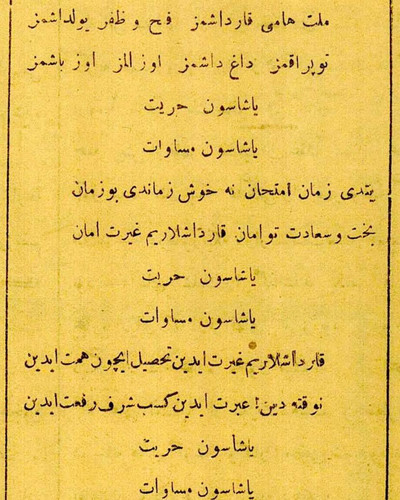 ملت هامی قارداشمز فتح و ظفر یولداشمز
توپراقمز داغ داشمز اوز المز اوز باشمز
یاشاسون حریت
یاشاسون مساوات
یتدی زمان امتحان نه خوش زماندی بوزمان
بخت و سعادت توامان قارداشلاریم غیرت امان
یاشاسون حریت
یاشاسون مساوات
قارداشلاریم غیرت ایدین تحصیل ایچون همت ایدین
نوقته دین! عبرت ایدین کسب شرف رفعت ایدین
یاشاسون حریت
یاشاسون مساوات